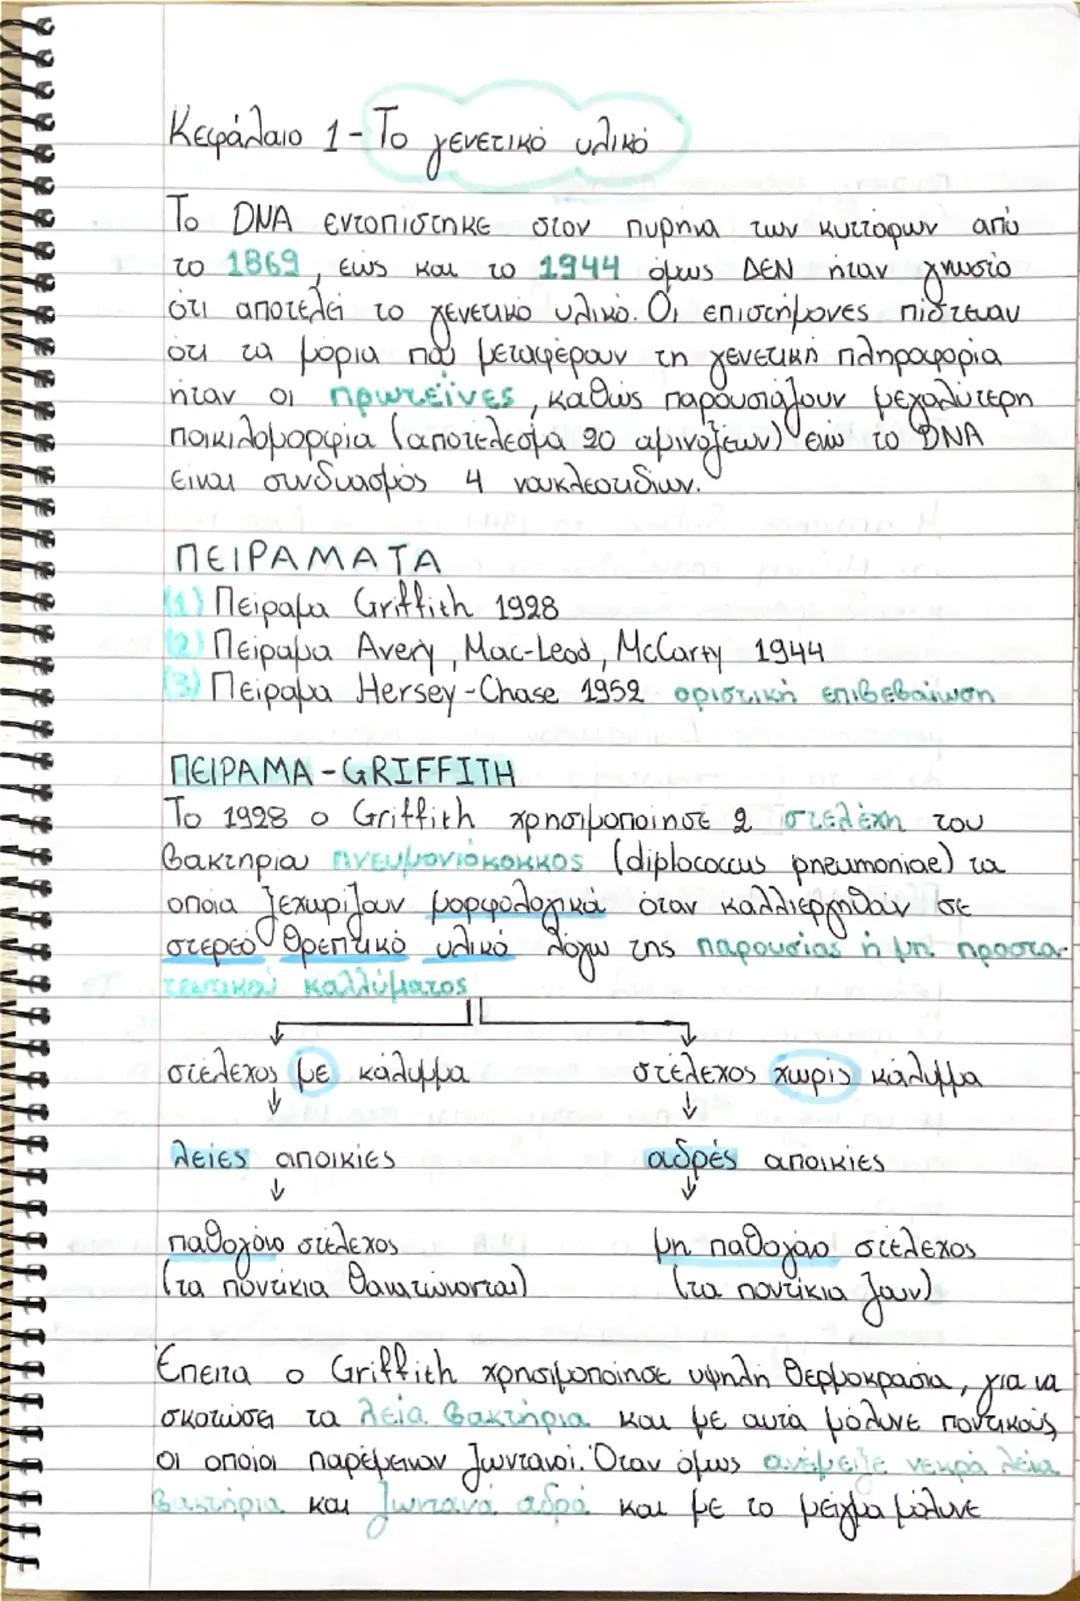 Κεφάλαιο 1 - Το γενετικό υλικό
Το DNA εντοπίστηκε στον πυρήνα των κυττάρων από
το 1869, έως και το 1944 όμως ΔΕΝ ήταν γνωστό
ότι αποτελεί το γενετικό υλικό. Οι επιστήμονες πίστευαν
ότι τα μόρια που μεταφέρουν τη γενετική πληροφορία
ήταν οι πρωτεΐνες, καθώς παρουσιάζουν μεγαλύτερη
ποικιλομορφία (αποτέλεσμα 20 αμινοξέων) ενώ το DNA
είναι συνδυασμός 4 νουκλεοτιδίων.
ΠΕΙΡΑΜΑΤΑ
(1) Πείραμα Griffith 1928
(2) Πείραμα Avery, Mac-Leod, McCarty 1944
(3) Πείραμα Hersey-Chase 1952 οριστική επιβεβαίωση
ΠΕΙΡΑΜΑ - GRIFFITH
Το 1928 ο Griffith χρησιμοποίησε 2 στελέχη του
βακτηρίου πνευμονιόκοκκος (diplococcus pneumoniae) τα
οποία ξεχωρίζαν μορφολογικά όταν καλλιεργήθαν σε
στερεό θρεπτικό υλικό λόγω της παρουσίας ή μη προστα-
τευτικού καλλύματος
στέλεχος με κάλυμμα στέλεχος χωρίς κάλυμμα
λείες αποικίες αδρές αποικίες
παθογόνο στέλεχος μη παθογόνο στέλεχος
(τα ποντίκια θανατώνονται) (τα ποντίκια ζουν)
Έπειτα ο Griffith χρησιμοποίησε υψηλή θερμοκρασία, για να
σκοτώσει τα λεία βακτήρια και με αυτά μόλυνε ποντικούς
οι οποίοι παρέμειναν ζωντανοί. Όταν όμως ανέμειξε νεκρά λεία
βακτήρια και ζωντανά αδρά και με το μείγμα μόλυνε